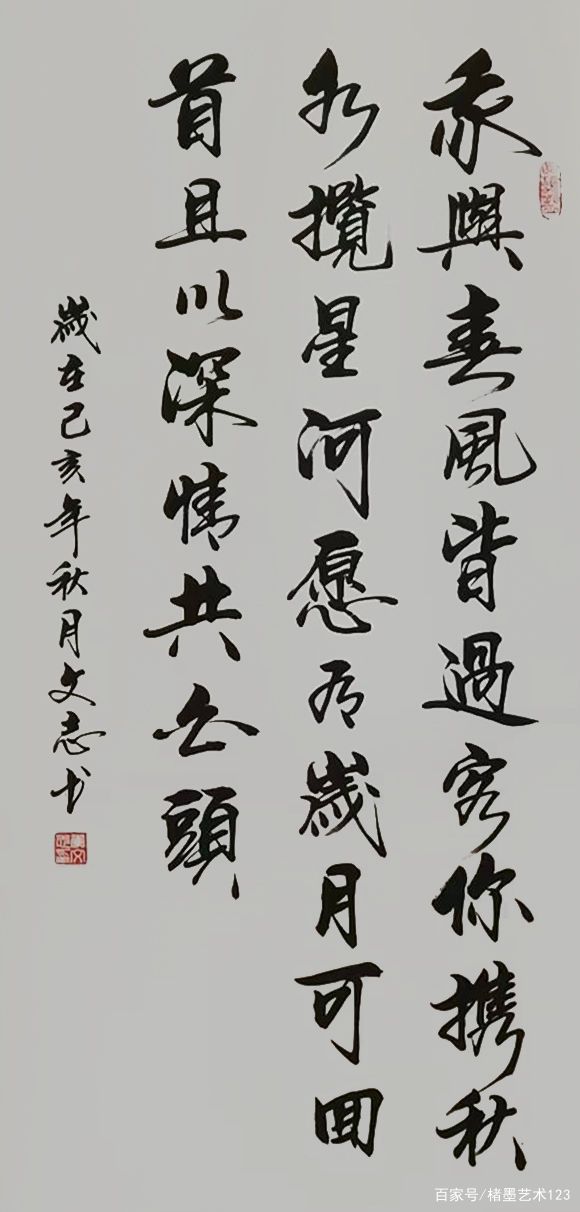 我與春風皆過客你攜秋
水攬星河愿有歲月可回
首且以深情共白頭
歲在己亥年秋月文志书
百家号/楮墨艺术123